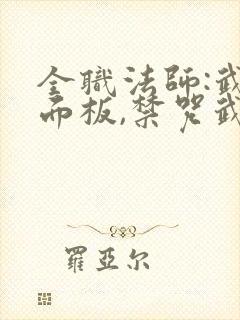 全職法師:武
而板,禁咒武
羅亞尔